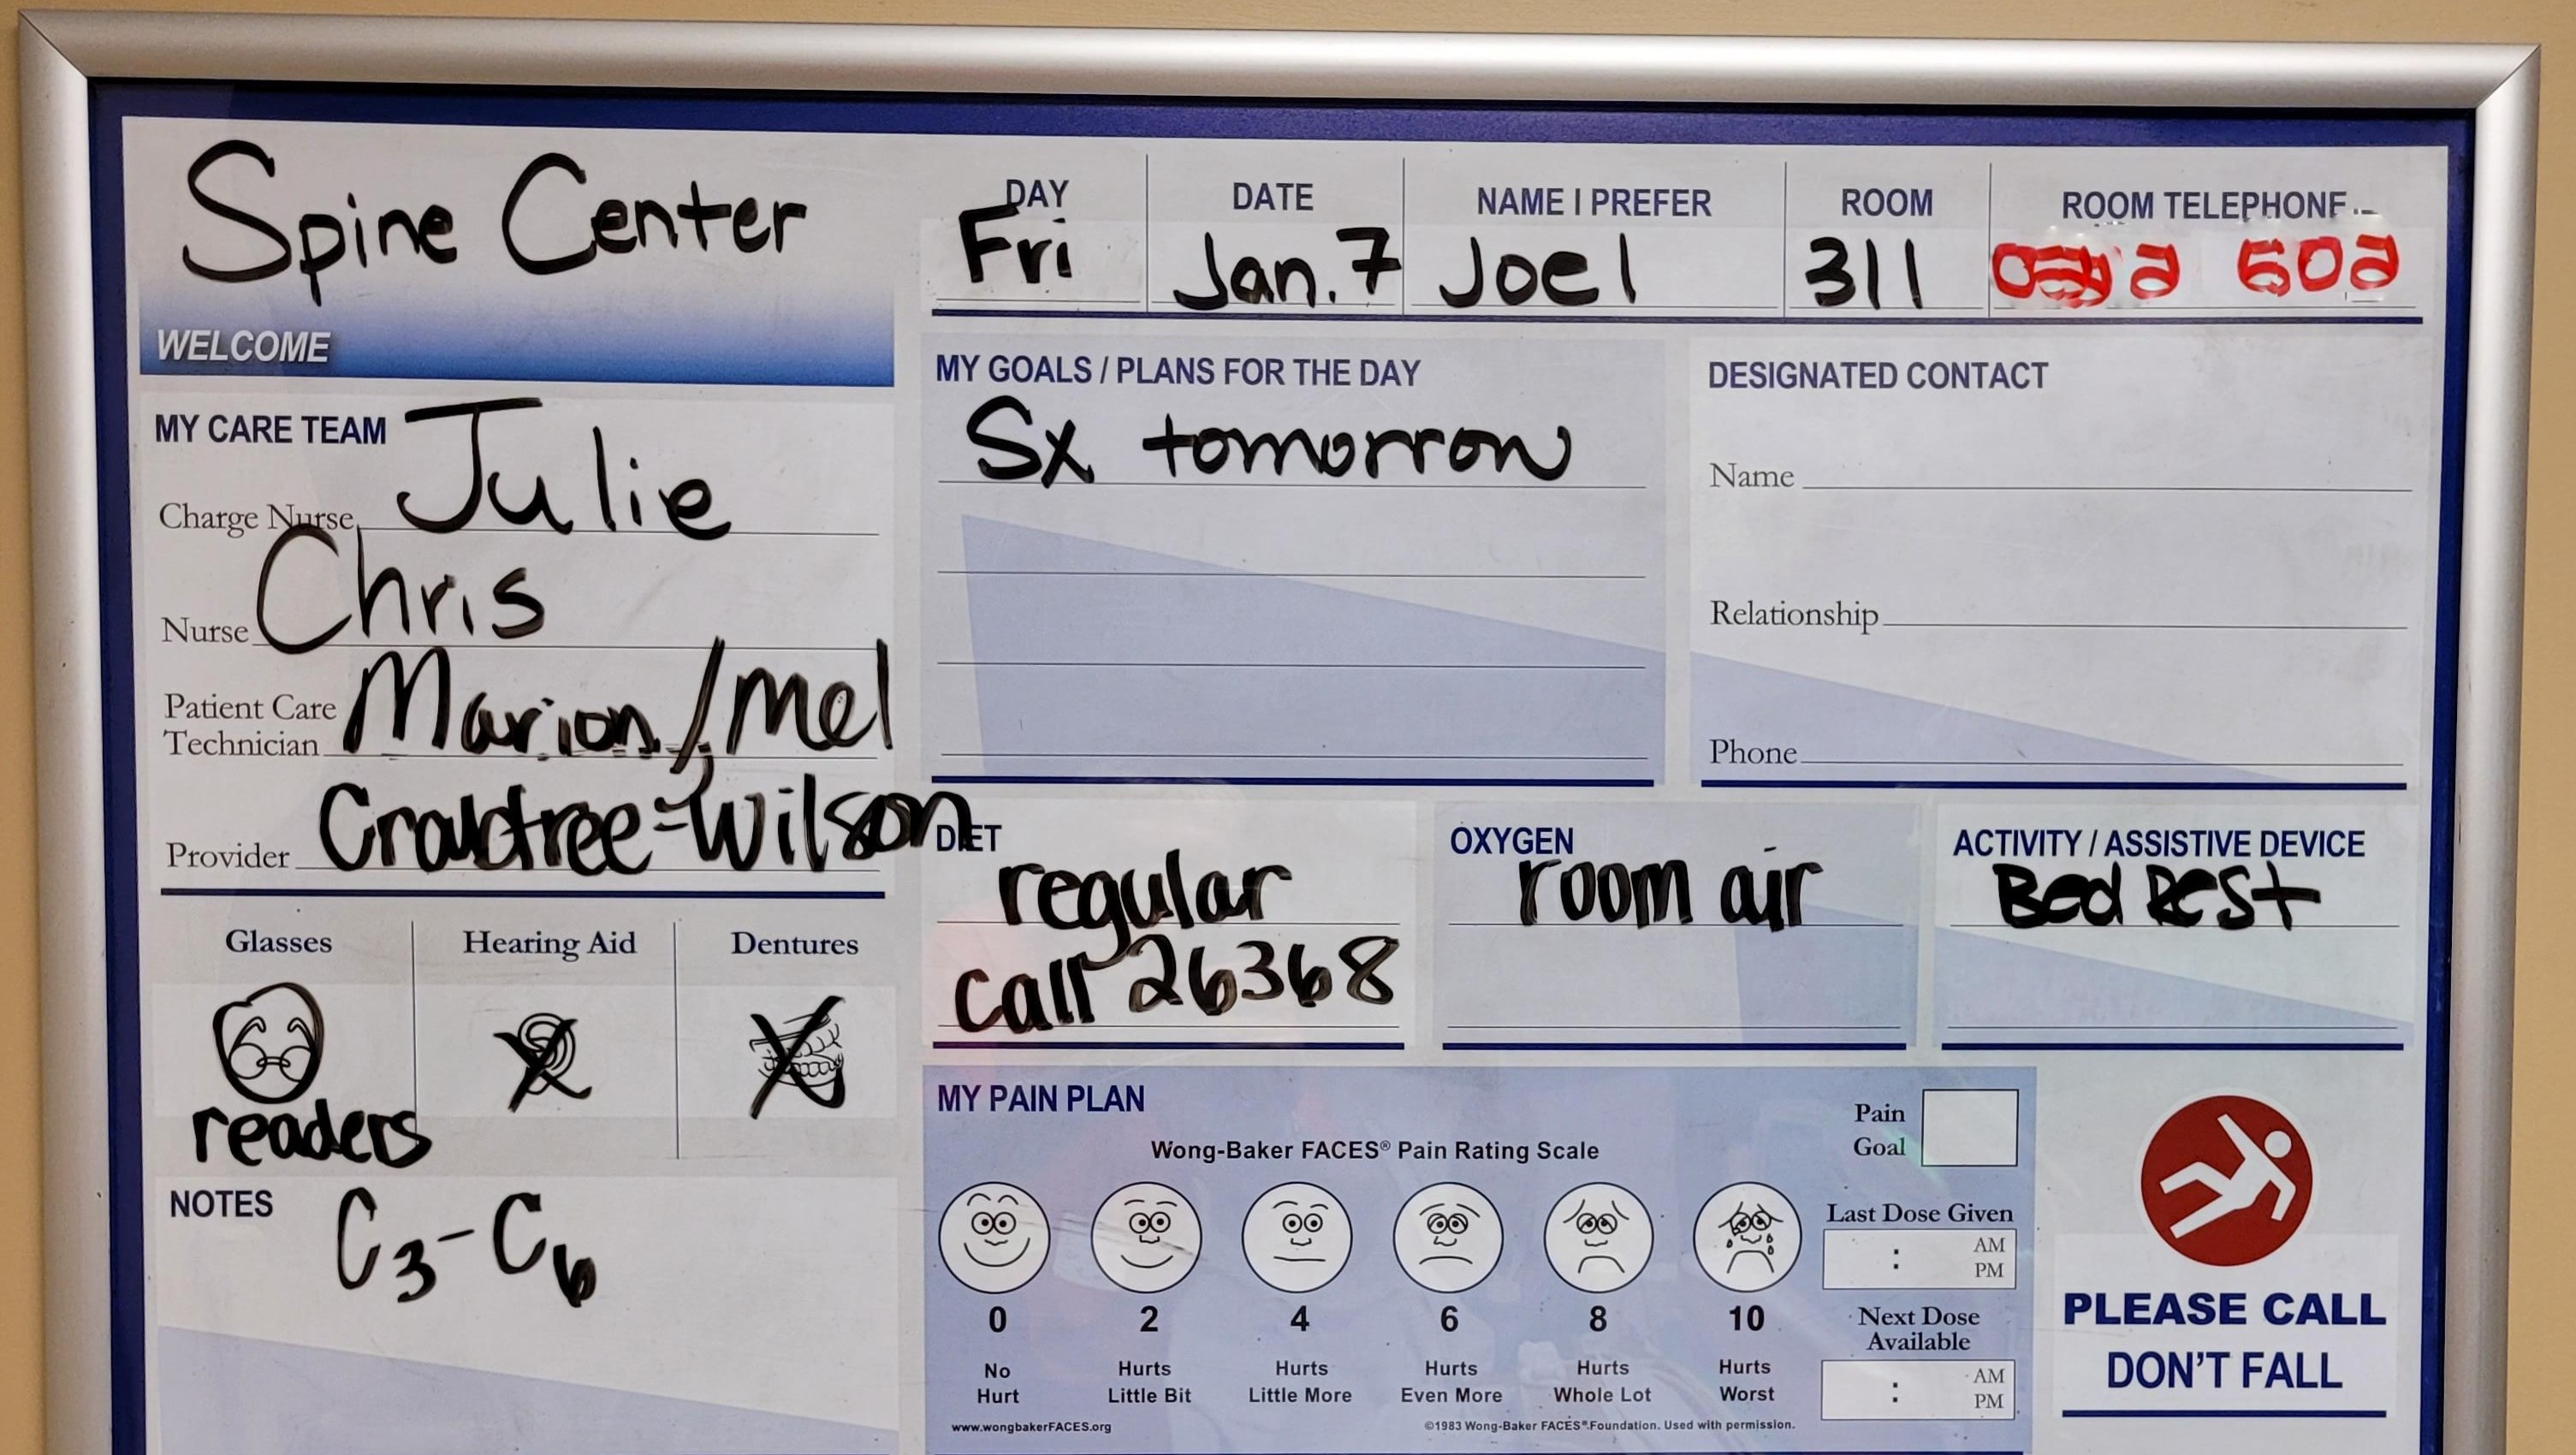 Spine Center
WELCOME
DAY
Fri
DATE
Jan. 7
NAME I PREFER
Joel
ROOM
311
ROOM TELEPHONE
MY CARE TEAM
Charge Nurse Julie
Nurse Chris
Patient Care
Technician Marion/Mel
Provider Crabtree-Wilson
Glasses
readers
Hearing Aid
Dentures
NOTES
C3-C6
MY GOALS / PLANS FOR THE DAY
Sx tomorrow
DESIGNATED CONTACT
Name
Relationship
Phone
DIET
regular
call 26368
OXYGEN
room air
ACTIVITY / ASSISTIVE DEVICE
Bed Rest
MY PAIN PLAN
Wong-Baker FACES® Pain Rating Scale
0
No
Hurt
2
Hurts
Little Bit
4
Hurts
Little More
6
Hurts
Even More
8
Hurts
Whole Lot
10
Hurts
Worst
www.wongbakerFACES.org
©1983 Wong-Baker FACES® Foundation. Used with permission.
Pain
Goal
Last Dose Given
: AM
PM
Next Dose
Available
: AM
PM
PLEASE CALL
DON'T FALL